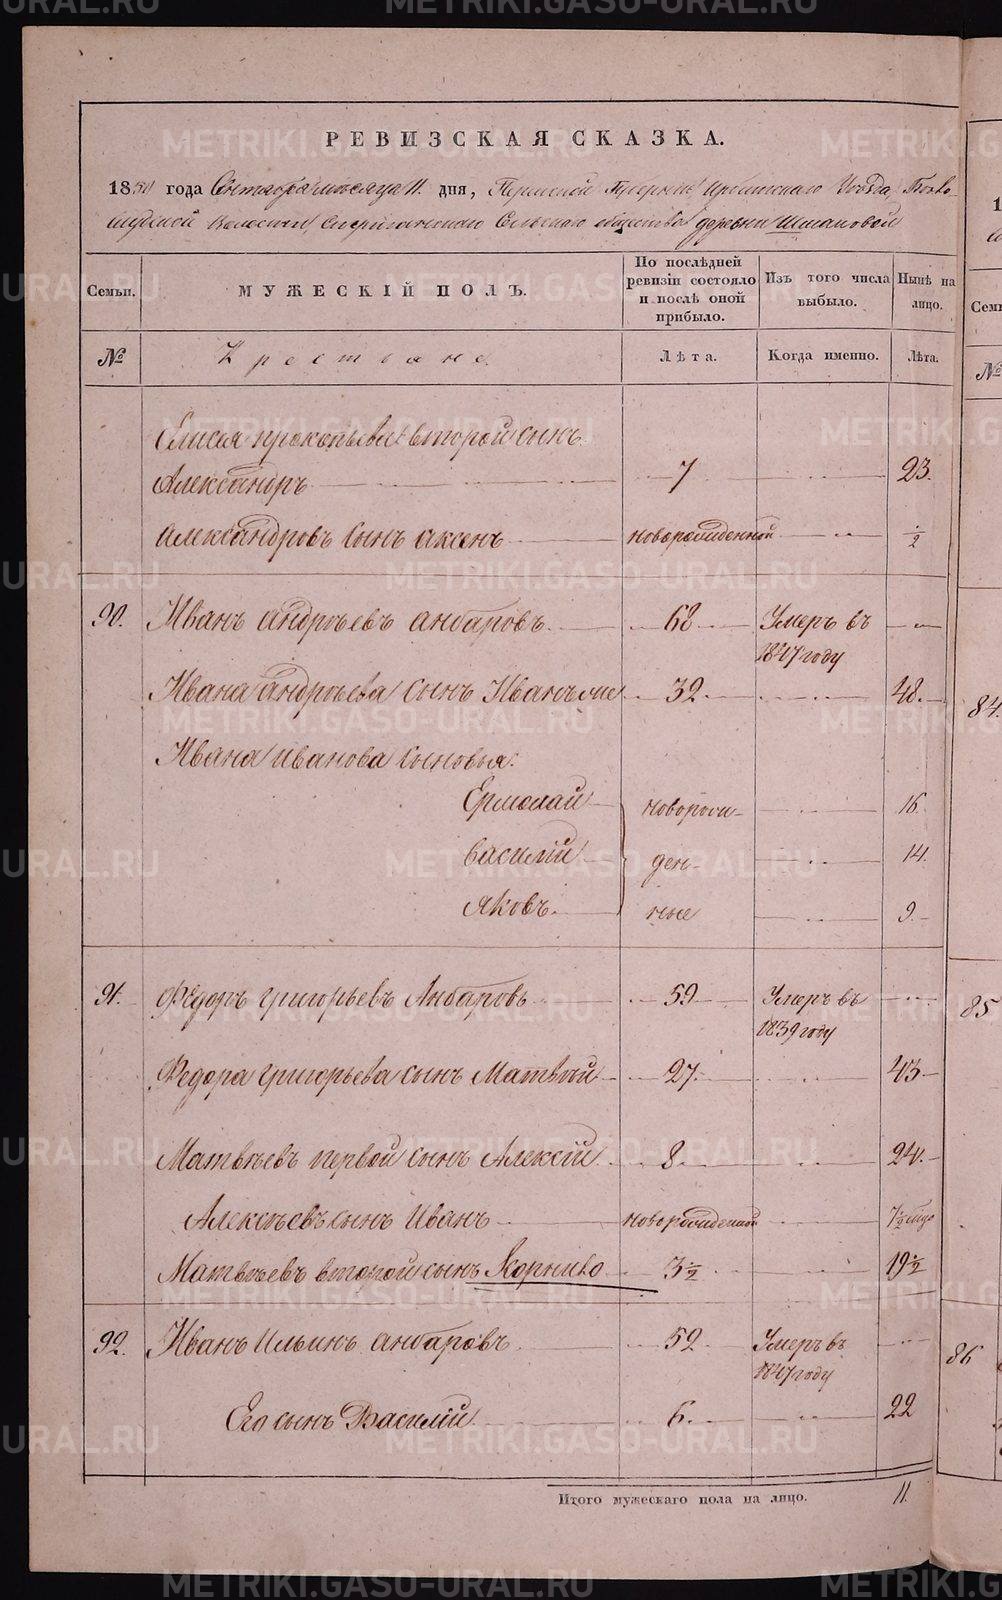 РЕВИЗСКАЯ СКАЗКА.
1850 года Сентября месяца 11. дня, Пермской Губернии Ирбитского Уѣзда
Волости Сельскаго общества деревни Шмаковой
Семьи. МУЖЕСКІЙ ПОЛЪ. По послѣдней ревизіи состояло и послѣ оной прибыло. Изъ того числа выбыло. Нынѣ на лицо.
№ Крестьяне. Лѣта. Когда именно. Лѣта.
Елисея Прокопьева второй сынъ
Александръ 7 23.
Александровъ сынъ Аксенъ новорожденной 1/2
90. Иванъ Андреевъ Анбаровъ 68 Умеръ въ
1847 году
Ивана Андреева сынъ Иванъ же 32. 48.
Ивана Иванова сыновья:
Ермолай новорож- 16.
Василій ден- 14.
Яковъ. ные 9.
91. Федоръ Григорьевъ Анбаровъ 59 Умеръ въ
1839 году
Федора Григорьева сынъ Матвей 27. 43
Матвѣевъ первой сынъ Алексій 8 24.
Алексѣевъ сынъ Иванъ новорожденной 7 1/2
Матвѣевъ второй сынъ Корнило 3 1/2 19 1/2
92. Иванъ Ильинъ Анбаровъ 52 Умеръ въ
1847 году
Его сынъ Василій 6. 22
Итого мужескаго пола на лицо. 11.
84.
85
86
METRIKI.GASO-URAL.RU